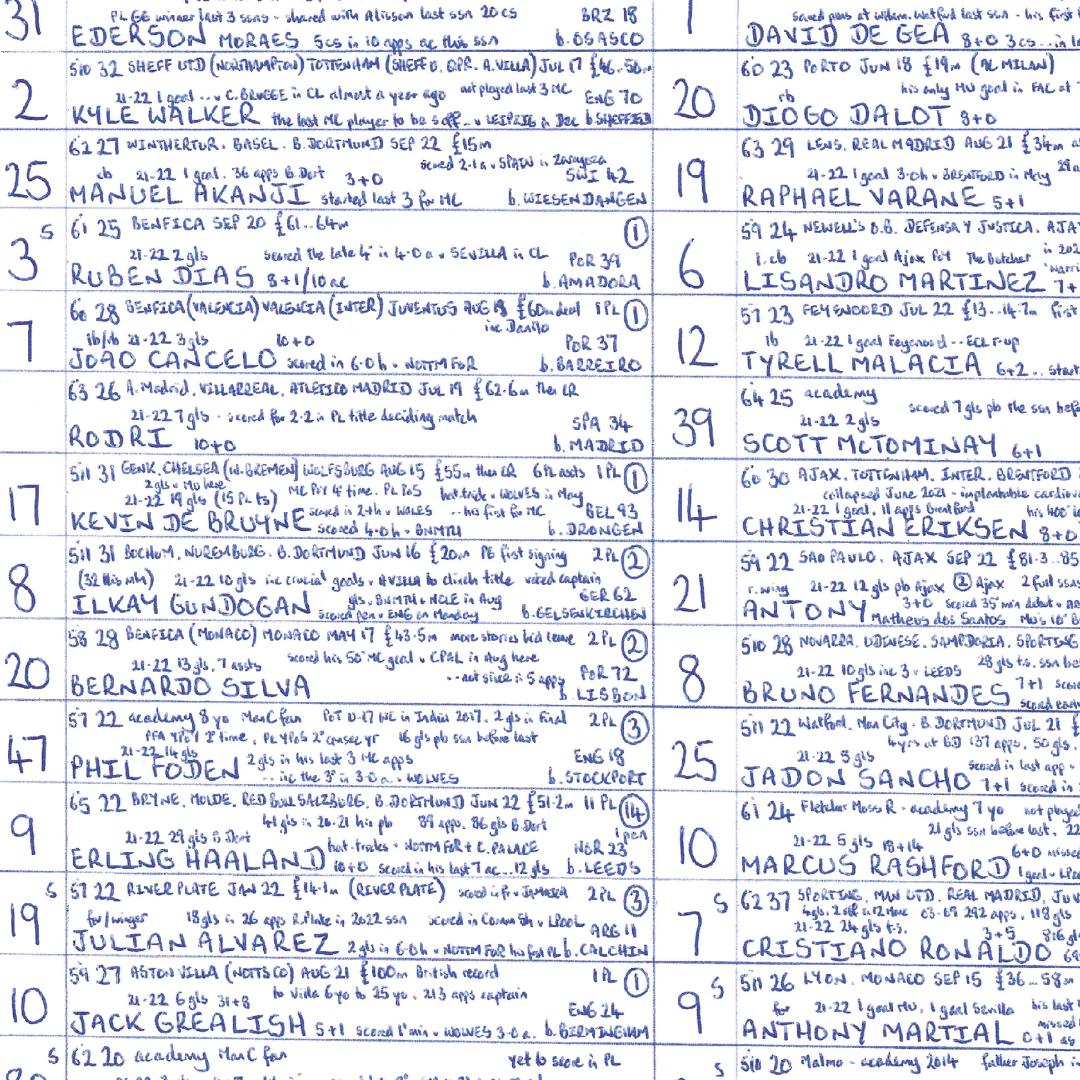 31
PL GG winner last 3 ssns - shared with Alisson last ssn 20cs BRZ 18
EDERSON MORAES 5cs in 10 apps ac this ssn b.OSASCO
2
510 32 SHEFF UTD (NORTHAMPTON) TOTTENHAM (SHEFF U. QPR. A.VILLA) JUL 17 £46..50m
21-22 1 goal ..v C.BRUGGE in CL almost a year ago not played last 3 MC ENG 70
KYLE WALKER the last MC player to be s off.. v LEIPZIG in Dec b.SHEFFIELD
25
62 27 WINTERTHUR. BASEL. B.DORTMUND SEP 22 £15m
scored 2-1 a v SPAIN in Zaragoza
cb 21-22 1 goal. 36 apps B.Dort 3+0 SWI 42
MANUEL AKANJI started last 3 for MC b.WIESENDANGEN
3 S
61 25 BENFICA SEP 20 £61..64m 1
21-22 2gls scored the late 4th in 4-0 a v SEVILLA in CL POR 39
RUBEN DIAS 8+1/10 ac b.AMADORA
7
60 28 BENFICA (VALENCIA) VALENCIA (INTER) JUVENTUS AUG 19 £60m deal 1PL 1
inc Danilo
lb/rb 21-22 3gls 10+0 POR 37
JOAO CANCELO scored in 6-0 h v NOTTM FOR b.BARREIRO
63 26 A.Madrid. VILLARREAL. ATLETICO MADRID JUL 19 £62.6m then CR
21-22 7 gls - scored for 2-2 in PL title deciding match SPA 34
RODRI 10+0 b.MADRID
17
511 31 GENK. CHELSEA (W.BREMEN) WOLFSBURG AUG 15 £55m then CR 6PL assts 1PL 1
2gls v MU here
21-22 19 gls (15 PL ts) MC PoY 4th time. PL PoS hat trick v WOLVES in May
scored in 2-1h v WALES ..his first for MC BEL 93
KEVIN DE BRUYNE scored 4-0h v BNMTH b.DRONGEN
8
511 31 BOCHUM. NUREMBURG. B.DORTMUND JUN 16 £20m PG first signing 2PL 2
(32 this mth) 21-22 10gls inc crucial goals v AVILLA to clinch title voted captain
gls v BNMTH v NCLE in Aug GER 62
ILKAY GUNDOGAN scored pen v ENG on Monday b.GELSENKIRCHEN
20
58 28 BENFICA (MONACO) MONACO MAY 17 £43.5m more stories hed leave 2PL 2
21-22 13 gls. 7 assts scored his 50th MC goal v CPAL in Aug here POR 72
BERNARDO SILVA ..not since in 5 apps b.LISBON
47
57 22 academy 8 yo ManC fan PoT U-17 WC in India 2017. 2 gls in Final 2PL 3
PFA YPoY 2nd time, PL YPoS 2nd consec yr 16 gls pb ssn before last
21-22 14 gls
PHIL FODEN 2gls in his last 3 MC apps ENG 18
..inc the 3rd in 3-0 a v WOLVES b.STOCKPORT
9
65 22 BRYNE. MOLDE. RED BULL SALZBURG. B.DORTMUND JUN 22 £51.2m 11 PL 14
41 gls in 20-21 his pb 89 apps. 86 gls B.Dort 1 pen
21-22 29 gls B.Dort
hat-tricks v NOTTM FOR + C.PALACE NOR 23
ERLING HAALAND 10+0 scored in his last 7 ac...12 gls b.LEEDS
19 S
57 22 RIVER PLATE JAN 22 £14.1m (RIVER PLATE) scored in fr v JAMAICA 2PL 3
for/winger 18gls in 26 apps R.Plate in 2022 ssn scored in Comm Sh v LPOOL ARG 11
JULIAN ALVAREZ 2 gls in 6-0 h v NOTTM FOR his first PL b.CALCHIN
10
59 27 ASTON VILLA (NOTTS CO) AUG 21 £100m British record 1PL 1
21-22 6gls 31+8 to Villa 6yo to 25 yo. 213 apps captain ENG 24
JACK GREALISH 5+1 scored 1st min v WOLVES 3-0 a. b.BIRMINGHAM
S
62 20 academy ManC fan yet to score in PL
1
saved pens at Wldm. Watford last ssn - his first
DAVID DE GEA 8+0 3cs
20
60 23 PORTO JUN 18 £19m (AC MILAN)
rb his only MU goal in FAC at
DIOGO DALOT 8+0
19
63 29 LENS. REAL MADRID AUG 21 £34m
21-22 1 goal 3-0h v BRENTFORD in May
RAPHAEL VARANE 5+1
6
59 24 NEWELL'S O.B. DEFENSA Y JUSTICA. AJA
l.cb 21-22 1 goal Ajax PoY The Butcher
LISANDRO MARTINEZ 7+
12
57 23 FEYENOORD JUL 22 £13..14.7m first
lb 21-22 1 goal Feyenoord - ECL r-up
TYRELL MALACIA 6+2.. start
39
64 25 academy scored 7 gls pb the ssn bef
21-22 2 gls
SCOTT McTOMINAY 6+1
14
60 30 AJAX. TOTTENHAM. INTER. BRENTFORD
collapsed June 2021 - implantable cardiov
21-22 1 goal, 11 apps Brentford his 400th
CHRISTIAN ERIKSEN 8+0
21
59 22 SAO PAULO. AJAX SEP 22 £81.3...85
r.wing 21-22 12 gls pb Ajax 2 Ajax 2 full ssns
3+0 scored 35th min debut v AR
ANTONY Matheus dos Santos MU's 10th B
8
510 28 NOVARA. UDINESE. SAMPDORIA. SPORTING
21-22 10gls inc 3 v LEEDS 28 gls t.s. ssn be
BRUNO FERNANDES 7+1 scored early
25
511 22 Watford. Man City. B.DORTMUND JUL 21 £
4yrs at BD 137 apps. 50 gls.
21-22 5 gls scored in last app v
JADON SANCHO 7+1 scored in
10
61 24 Fletcher Moss R - academy 7 yo not played
21 gls ssn before last. 22
21-22 5 gls 18+14
MARCUS RASHFORD 6+0 missed
1 goal v LPool
7 S
62 37 SPORTING. MAN UTD. REAL MADRID. JUV
03-09 292 apps. 118 gls
21-22 24 gls t.s. 3+5
CRISTIANO RONALDO
9 S
511 26 LYON. MONACO SEP 15 £36...58m
for 21-22 1 goal MU, 1 goal Sevilla his last
ANTHONY MARTIAL 0+1 as
S
510 20 Malmo - academy 2014 father Joseph